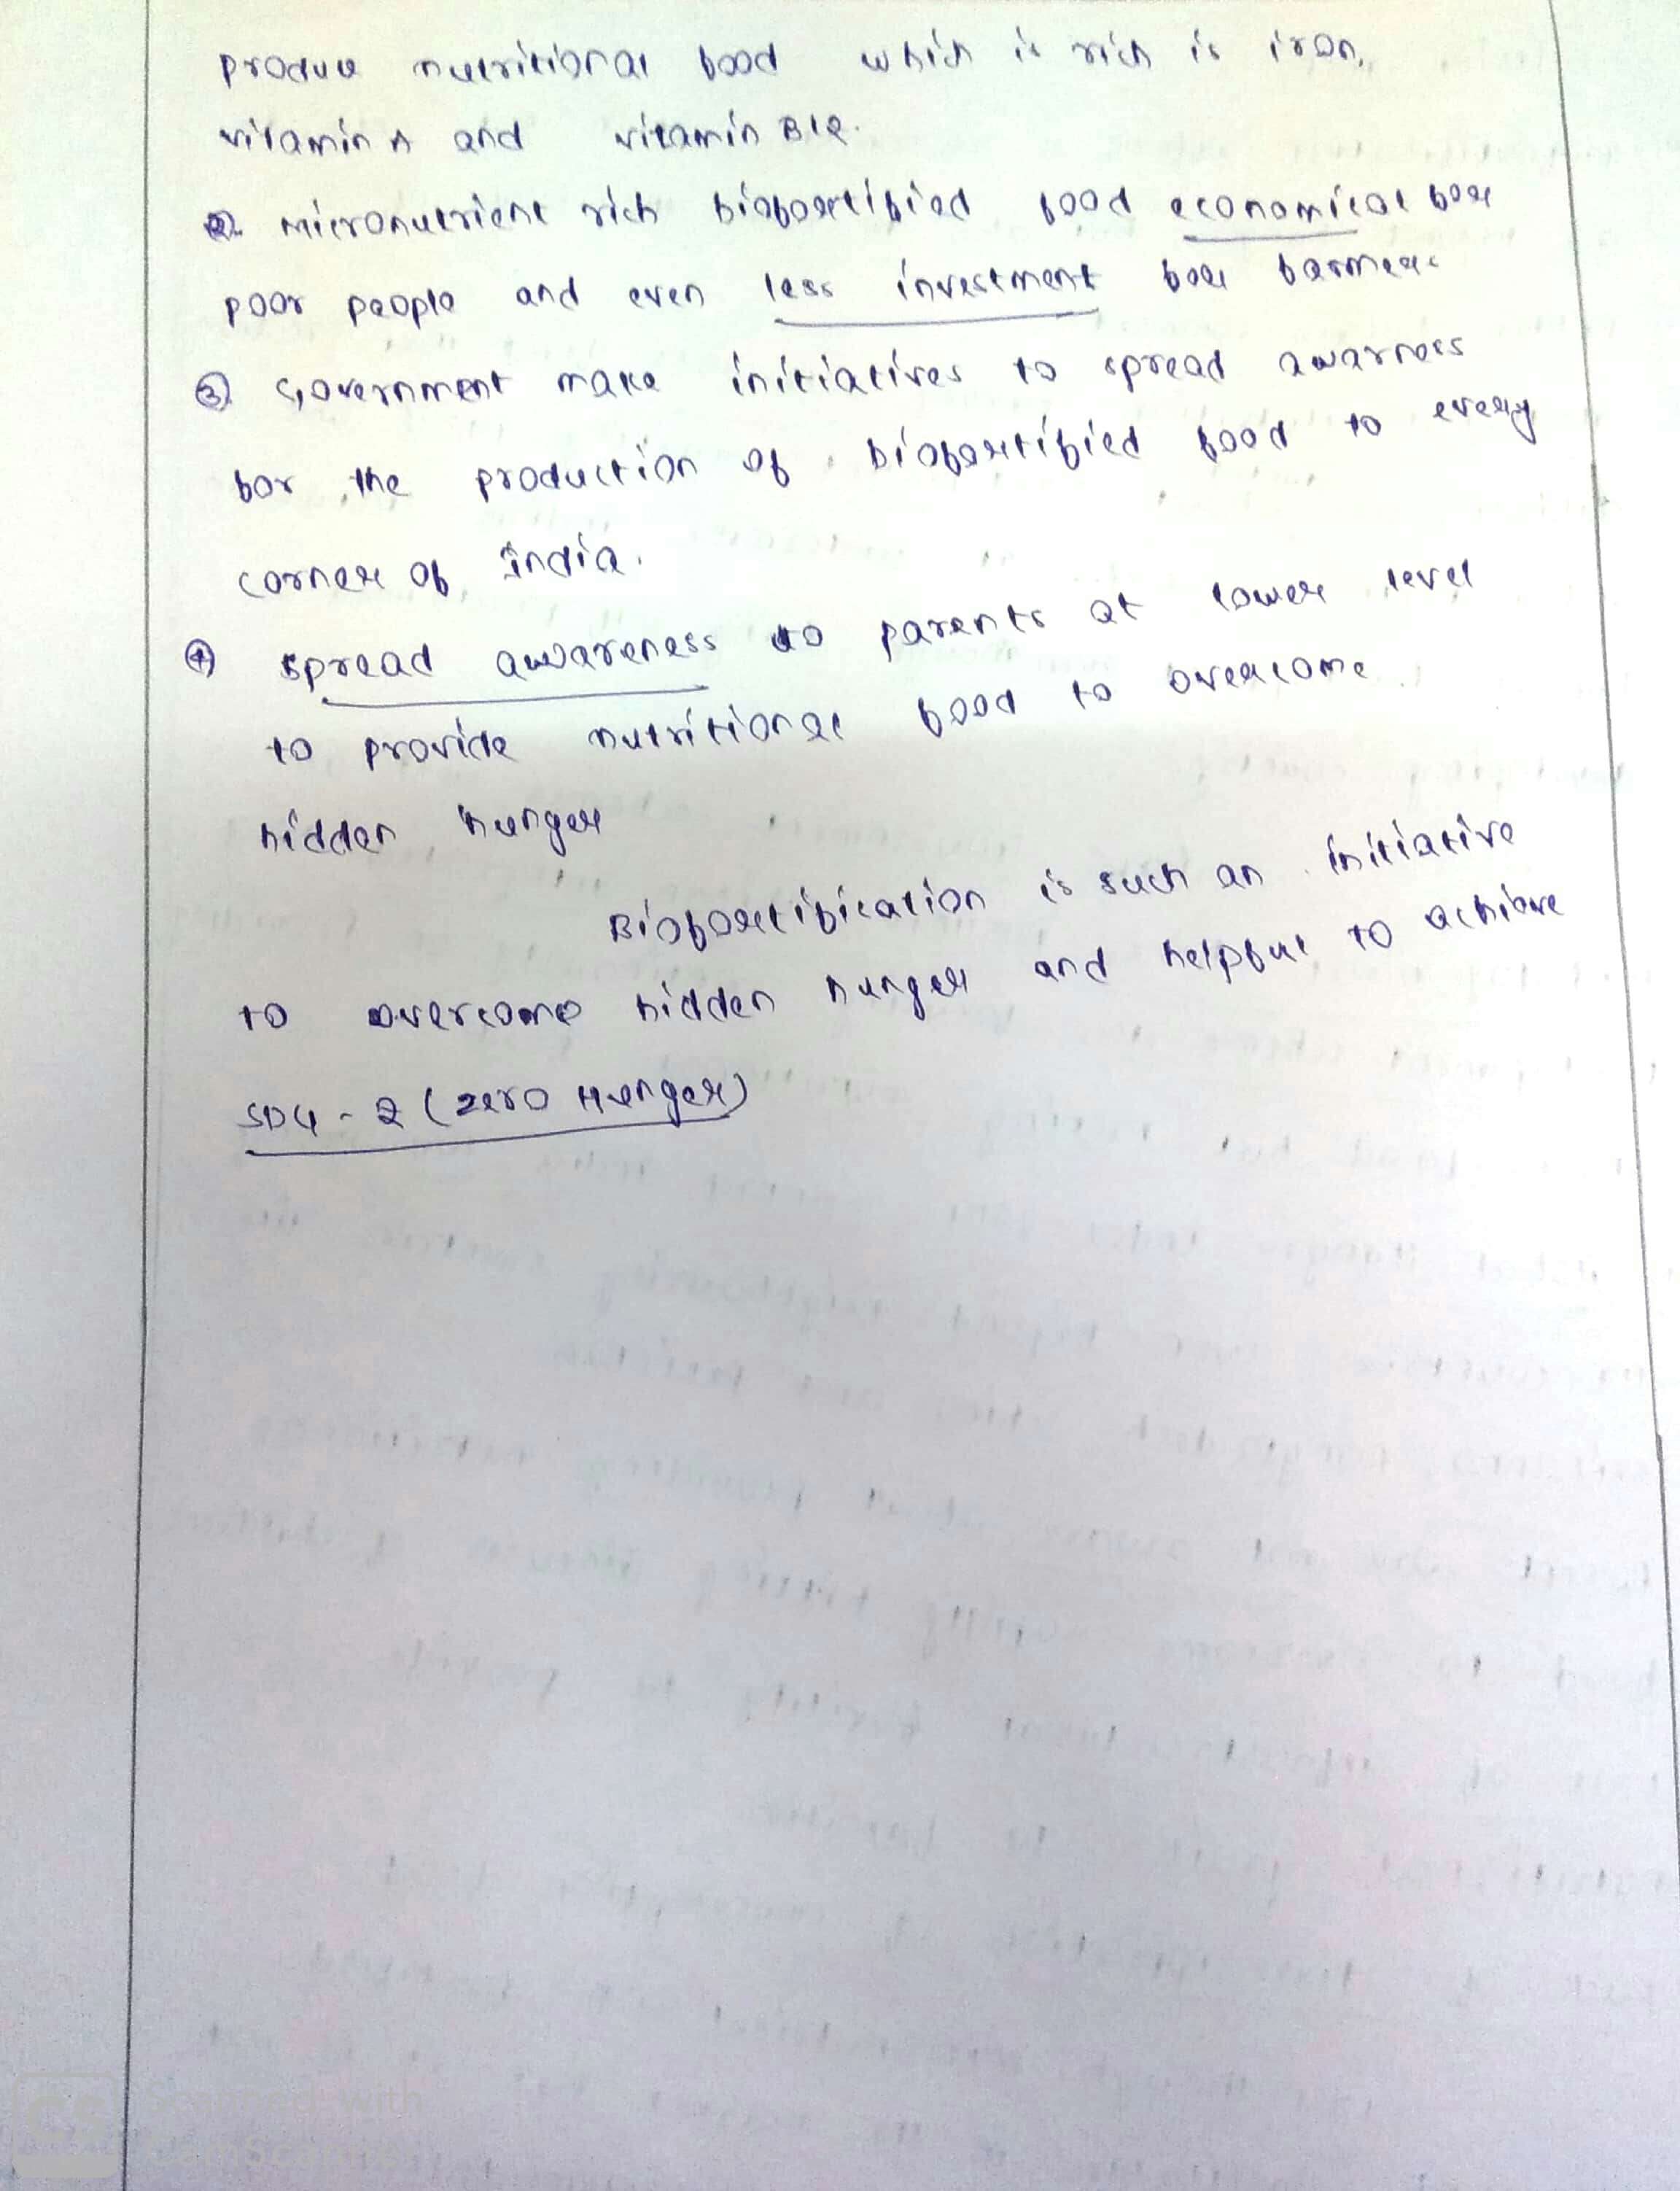 produce nutritional food which is rich is iron,
vitamin A and vitamin B12.
② Micronutrient rich biofortified food economical for
poor people and even less investment for farmers
③ Government make initiatives to spread awarness
for the production of biofortified food to every
corner of India.
④ spread awareness to parents at lower level
to provide nutritional food to overcome
hidden hunger
Biofortification is such an initiative
to overcome hidden hunger and helpful to achieve
SDG - 2 (zero Hunger)
Scanned with
CamScanner